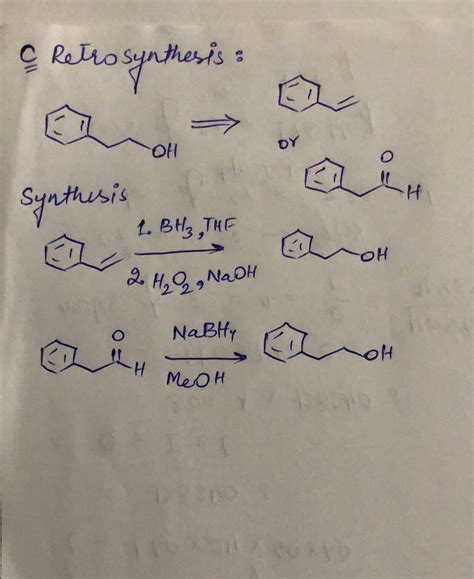 C Retrosynthesis :
OH
or
O
H
Synthesis
1. BH3, THF
2. H2O2, NaOH
OH
O
H
NaBH4
MeOH
OH